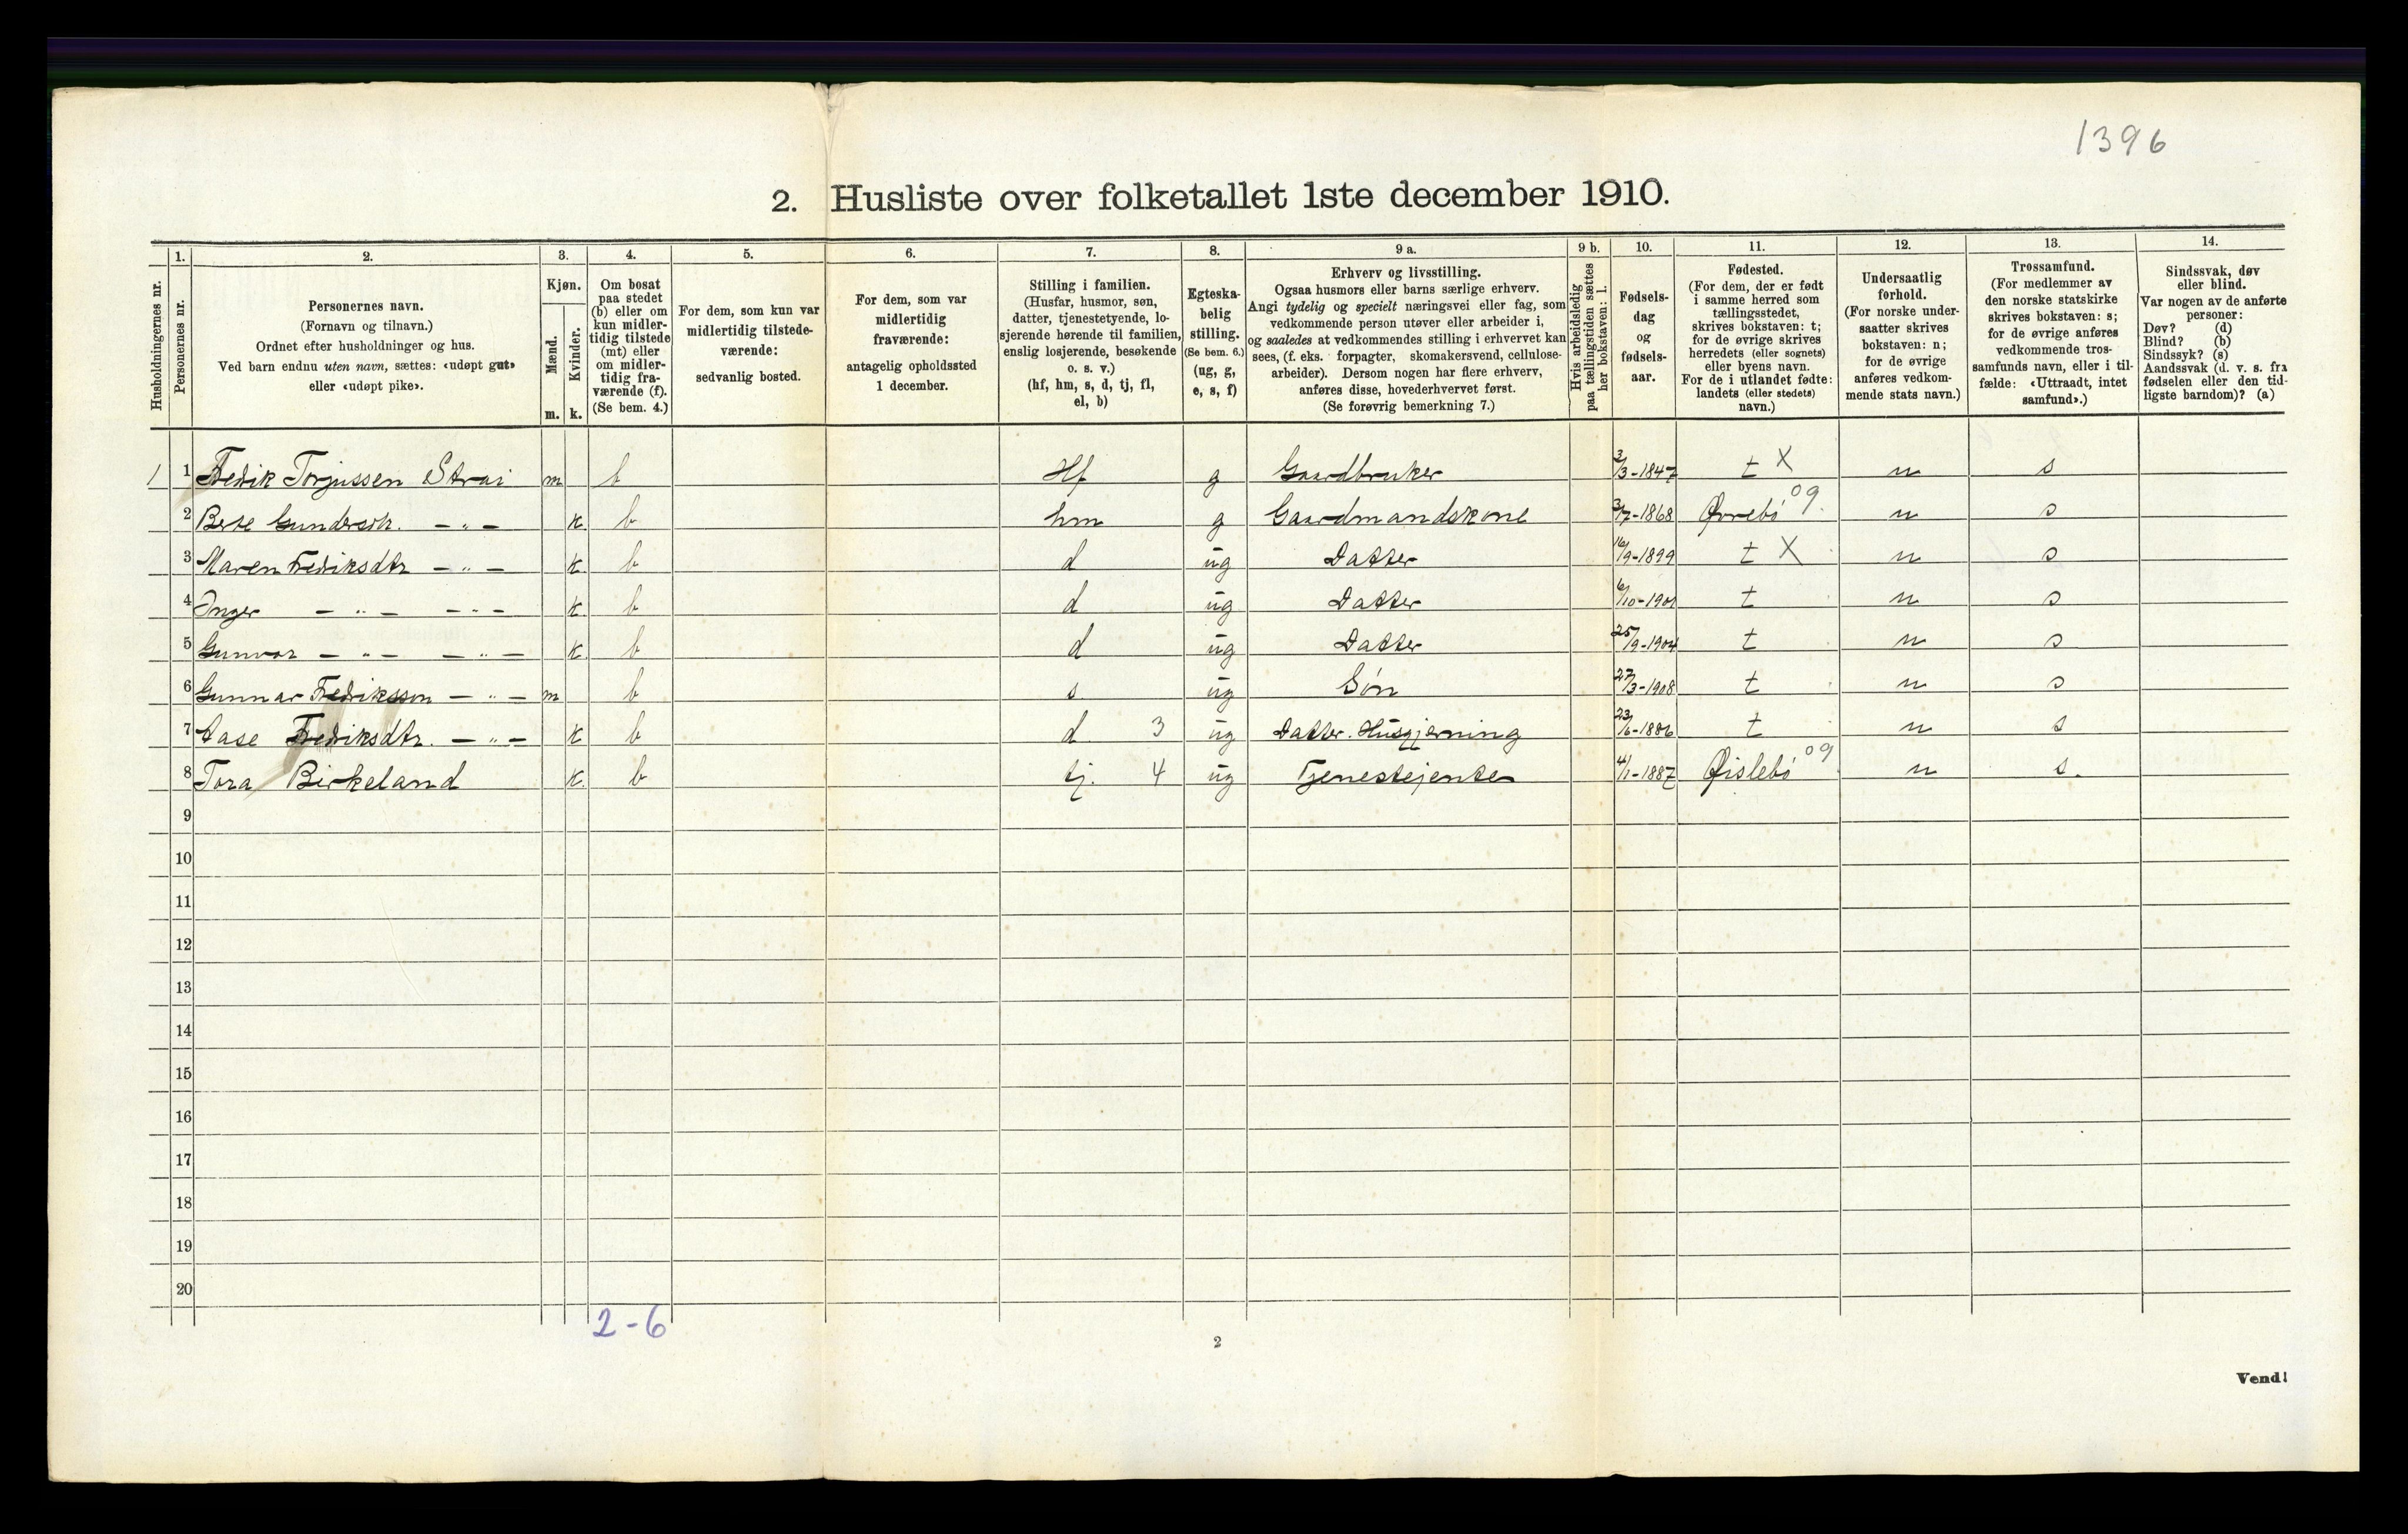 1396
2. Husliste over folketallet 1ste december 1910.
Husholdningernes nr.
1.
Personernes nr.
2.
Personernes navn.
(Fornavn og tilnavn.)
Ordnet efter husholdninger og hus.
Ved barn endnu uten navn, sættes: «udøpt gut»
eller «udøpt pike».
3.
Kjøn.
Mænd.
Kvinder.
m. k.
4.
Om bosat
paa stedet
(b) eller om
kun midler-
tidig tilstede
(mt) eller
om midler-
tidig fra-
værende (f).
(Se bem. 4.)
5.
For dem, som kun var
midlertidig tilstede-
værende:
sedvanlig bosted.
6.
For dem, som var
midlertidig
fraværende:
antagelig opholdssted
1 december.
7.
Stilling i familien.
(Husfar, husmor, søn,
datter, tjenestetyende, lo-
sjerende hørende til familien,
enslig losjerende, besøkende
o. s. v.)
(hf, hm, s, d, tj, fl,
el, b)
8.
Egteska-
belig
stilling.
(Se bem. 6.)
(ug, g,
e, s, f)
9 a.
Erhverv og livsstilling.
Ogsaa husmors eller barns særlige erhverv.
Angi tydelig og specielt næringsvei eller fag, som
vedkommende person utøver eller arbeider i,
og saaledes at vedkommendes stilling i erhvervet kan
sees, (f. eks. forpagter, skomakersvend, cellulose-
arbeider). Dersom nogen har flere erhverv,
anføres disse, hovederhvervet først.
(Se forøvrig bemerkning 7.)
9 b.
Hvis arbeidsledig
paa tællingstiden sættes
her bokstaven: l.
10.
Fødsels-
dag
og
fødsels-
aar.
11.
Fødested.
(For dem, der er født
i samme herred som
tællingsstedet,
skrives bokstaven: t;
for de øvrige skrives
herredets (eller sognets)
eller byens navn.
For de i utlandet fødte:
landets (eller stedets)
navn.)
12.
Undersaatlig
forhold.
(For norske under-
saatter skrives
bokstaven: n;
for de øvrige
anføres vedkom-
mende stats navn.)
13.
Trossamfund.
(For medlemmer av
den norske statskirke
skrives bokstaven: s;
for de øvrige anføres
vedkommende tros-
samfunds navn, eller i til-
fælde: «Uttraadt, intet
samfund».)
14.
Sindssvak, døv
eller blind.
Var nogen av de anførte
personer:
Døv? (d)
Blind? (b)
Sindssyk? (s)
Aandssvak (d. v. s. fra
fødselen eller den tid-
ligste barndom)? (a)
1 1 Fredik Torjussen Strai m b Hf g Gaardbruker 3/3-1847 t X n s
2 Berte Gundersdtr. - " - k b hm g Gaardmandskone 3/7-1868 Øvrebø 09 n s
3 Maren Fredriksdtr - " - k b d ug Datter 16/9-1899 t X n s
4 Inger - " - - " - k b d ug Datter 6/10-1901 t n s
5 Gunvor - " - - " - k b d ug Datter 25/9-1904 t n s
6 Gunnar Fredriksson - " - m b s ug Søn 27/3-1908 t n s
7 Aase Fredriksdtr. - " - k b d 3 ug Datter. Husgjerning 23/6-1886 t n s
8 Tora Birkeland k b tj. 4 ug Tjenestejente 4/1-1887 Øislebø 09 n s.
9
10
11
12
13
14
15
16
17
18
19
20
2-6
2
Vend!